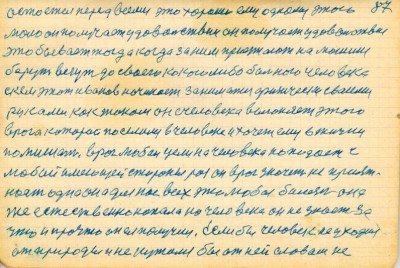 остается перед всеми это хорошо ему одному этого 87.
мало он получает удовлетвствия он получает удовольствия
это бывает тогда когда за ним приезжают на машине
берут везут до своего какого либо больного человека
с кем этот иванов начинает заниматся физически своими
руками как током он с человека выгоняет этого
врога которая поселили в человеке и хочет ему в жизни
помешать. враг любой цели на человека находит с
любой имеющей стороны раз он враг значит не приятность
одна она для нас всех это любая болезнь она
же естественно попала на человека он не знает за
что и про что он их получил. если бы человек не уходил
от природы и не пугался бы от ней словам не